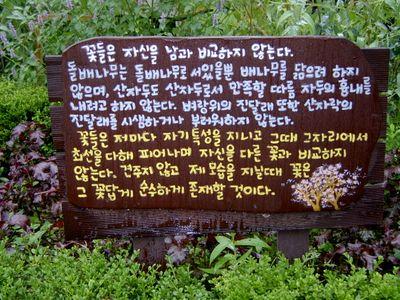 꽃들은 자신을 남과 비교하지 않는다.
돌배나무는 돌배나무로 서있을뿐 배나무를 닮으려 하지
않으며, 산자두도 산자두로서 만족할 따름 자두의 흉내를
내려고 하지 않는다. 벼랑위의 진달래 또한 산자락의
진달래를 시샘하거나 부러워하지 않는다.
꽃들은 저마다 자기특성을 지니고 그때 그자리에서
최선을 다해 피어나며 자신을 다른 꽃과 비교하지
않는다. 견주지 않고 제 모습을 지닐때 꽃은
그 꽃답게 순수하게 존재할 것이다.